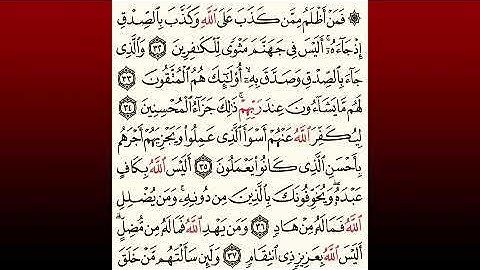 ۞ فَمَنْ أَظْلَمُ مِمَّن كَذَبَ عَلَى ٱللَّهِ وَكَذَّبَ بِٱلصِّدْقِ
إِذْ جَآءَهُۥٓ ۚ أَلَيْسَ فِى جَهَنَّمَ مَثْوًى لِّلْكَٰفِرِينَ ٣٢ وَٱلَّذِى
جَآءَ بِٱلصِّدْقِ وَصَدَّقَ بِهِۦٓ ۙ أُو۟لَٰٓئِكَ هُمُ ٱلْمُتَّقُونَ ٣٣
لَهُم مَّا يَشَآءُونَ عِندَ رَبِّهِمْ ۚ ذَٰلِكَ جَزَآءُ ٱلْمُحْسِنِينَ ٣٤
لِيُكَفِّرَ ٱللَّهُ عَنْهُمْ أَسْوَأَ ٱلَّذِى عَمِلُوا۟ وَيَجْزِيَهُمْ أَجْرَهُم
بِأَحْسَنِ ٱلَّذِى كَانُوا۟ يَعْمَلُونَ ٣٥ أَلَيْسَ ٱللَّهُ بِكَافٍ
عَبْدَهُۥ ۖ وَيُخَوِّفُونَكَ بِٱلَّذِينَ مِن دُونِهِۦ ۚ وَمَن يُضْلِلِ
ٱللَّهُ فَمَا لَهُۥ مِنْ هَادٍ ٣٦ وَمَن يَهْدِ ٱللَّهُ فَمَا لَهُۥ مِن مُّضِلٍّ ۗ
أَلَيْسَ ٱللَّهُ بِعَزِيزٍ ذِى ٱنتِقَامٍ ٣٧ وَلَئِن سَأَلْتَهُم مَّنْ خَلَقَ